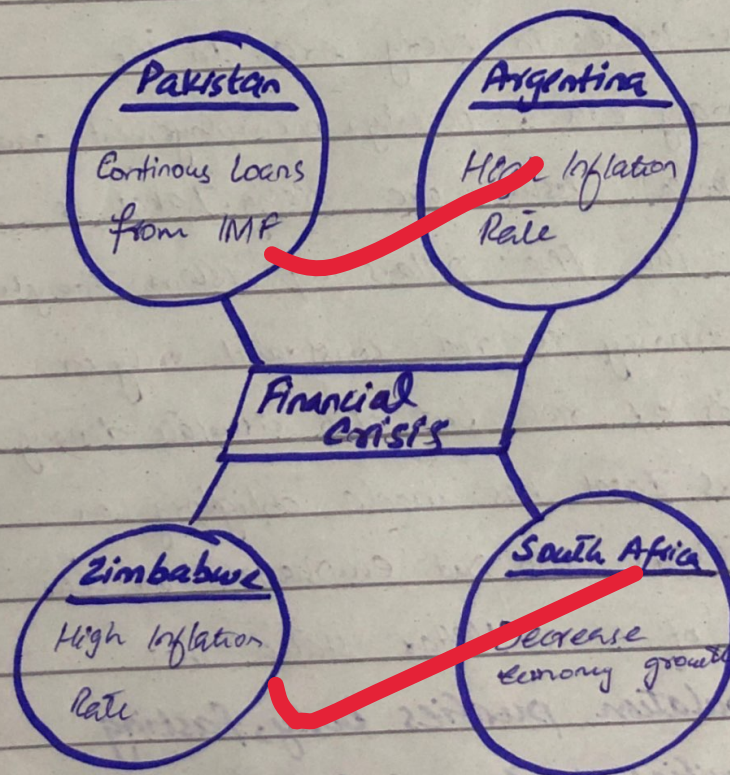 Pakistan
Continous Loans
from IMF
Argentina
High Inflation
Rate
Financial
Crisis
Zimbabwe
High Inflation
Rate
South Africa
Decrease
economy growth